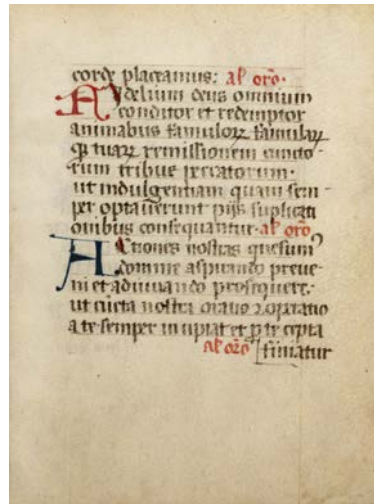 corde placeamus: al' orõ.
Fidelium deus omnium
conditor et redemptor
animabus famulorꝝ famularꝝ
qꝫ tuarꝝ remissionem cuncto-
rum tribue peccatorum.
ut indulgentiam quam sem-
per optaverunt piis suplicati
onibus consequantur. al' orõ
Actiones nostras quesumꝰ
domine aspirando preve-
ni et adiuvando prosequere.
ut cũcta nostra oratio ⁊ opatio
a te semper incipiat et p te cepta
al' orõ finiatur